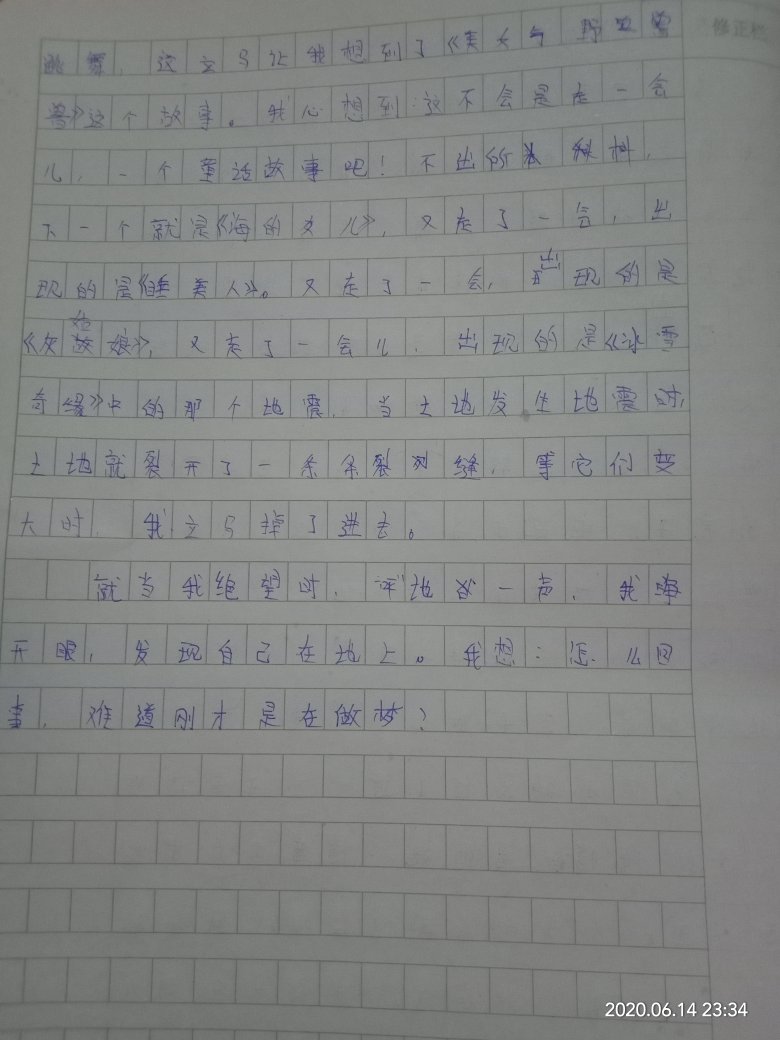 修正栏
跳舞，这立马让我想到了《美女与野兽
》这个故事。我心想到：这不会是走一会
儿，一个童话故事吧！不出所料，
下一个就是《海的女儿》，又走了一会，出
现的是《睡美人》。又走了一会，出现的是
《灰姑娘》，又走了一会儿，出现的是《冰雪
奇缘》中的那个地震，当土地发生地震时，
土地就裂开了一条条裂缝，等它们变
大时，我立马掉了进去。
就当我绝望时，“咚”地一声，我睁
开眼，发现自己在地上。我想：怎么回
事，难道刚才是在做梦？
2020.06.14 23:34